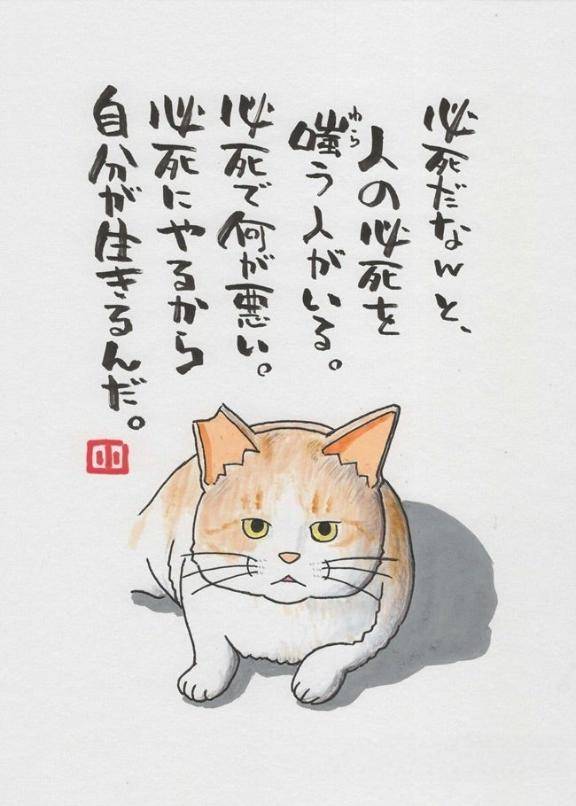 必死だなんと、
人の必死を
嗤う人がいる。
わら
必死で何が悪い。
必死にやるから
自分が生きるんだ。